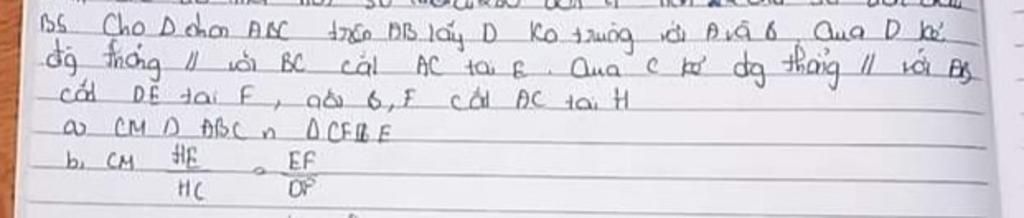 B5 Cho Δ chon ABC trên AB lấy D Ko trùng với A và B. Qua D kẻ
đg thẳng // với BC cắt AC tại E. Qua C kẻ đg thẳng // với AB
cắt DE tại F, gọi B, F cắt AC tại H
a) CM Δ ABC ~ Δ CFE
b, CM HE/HC = EF/DF